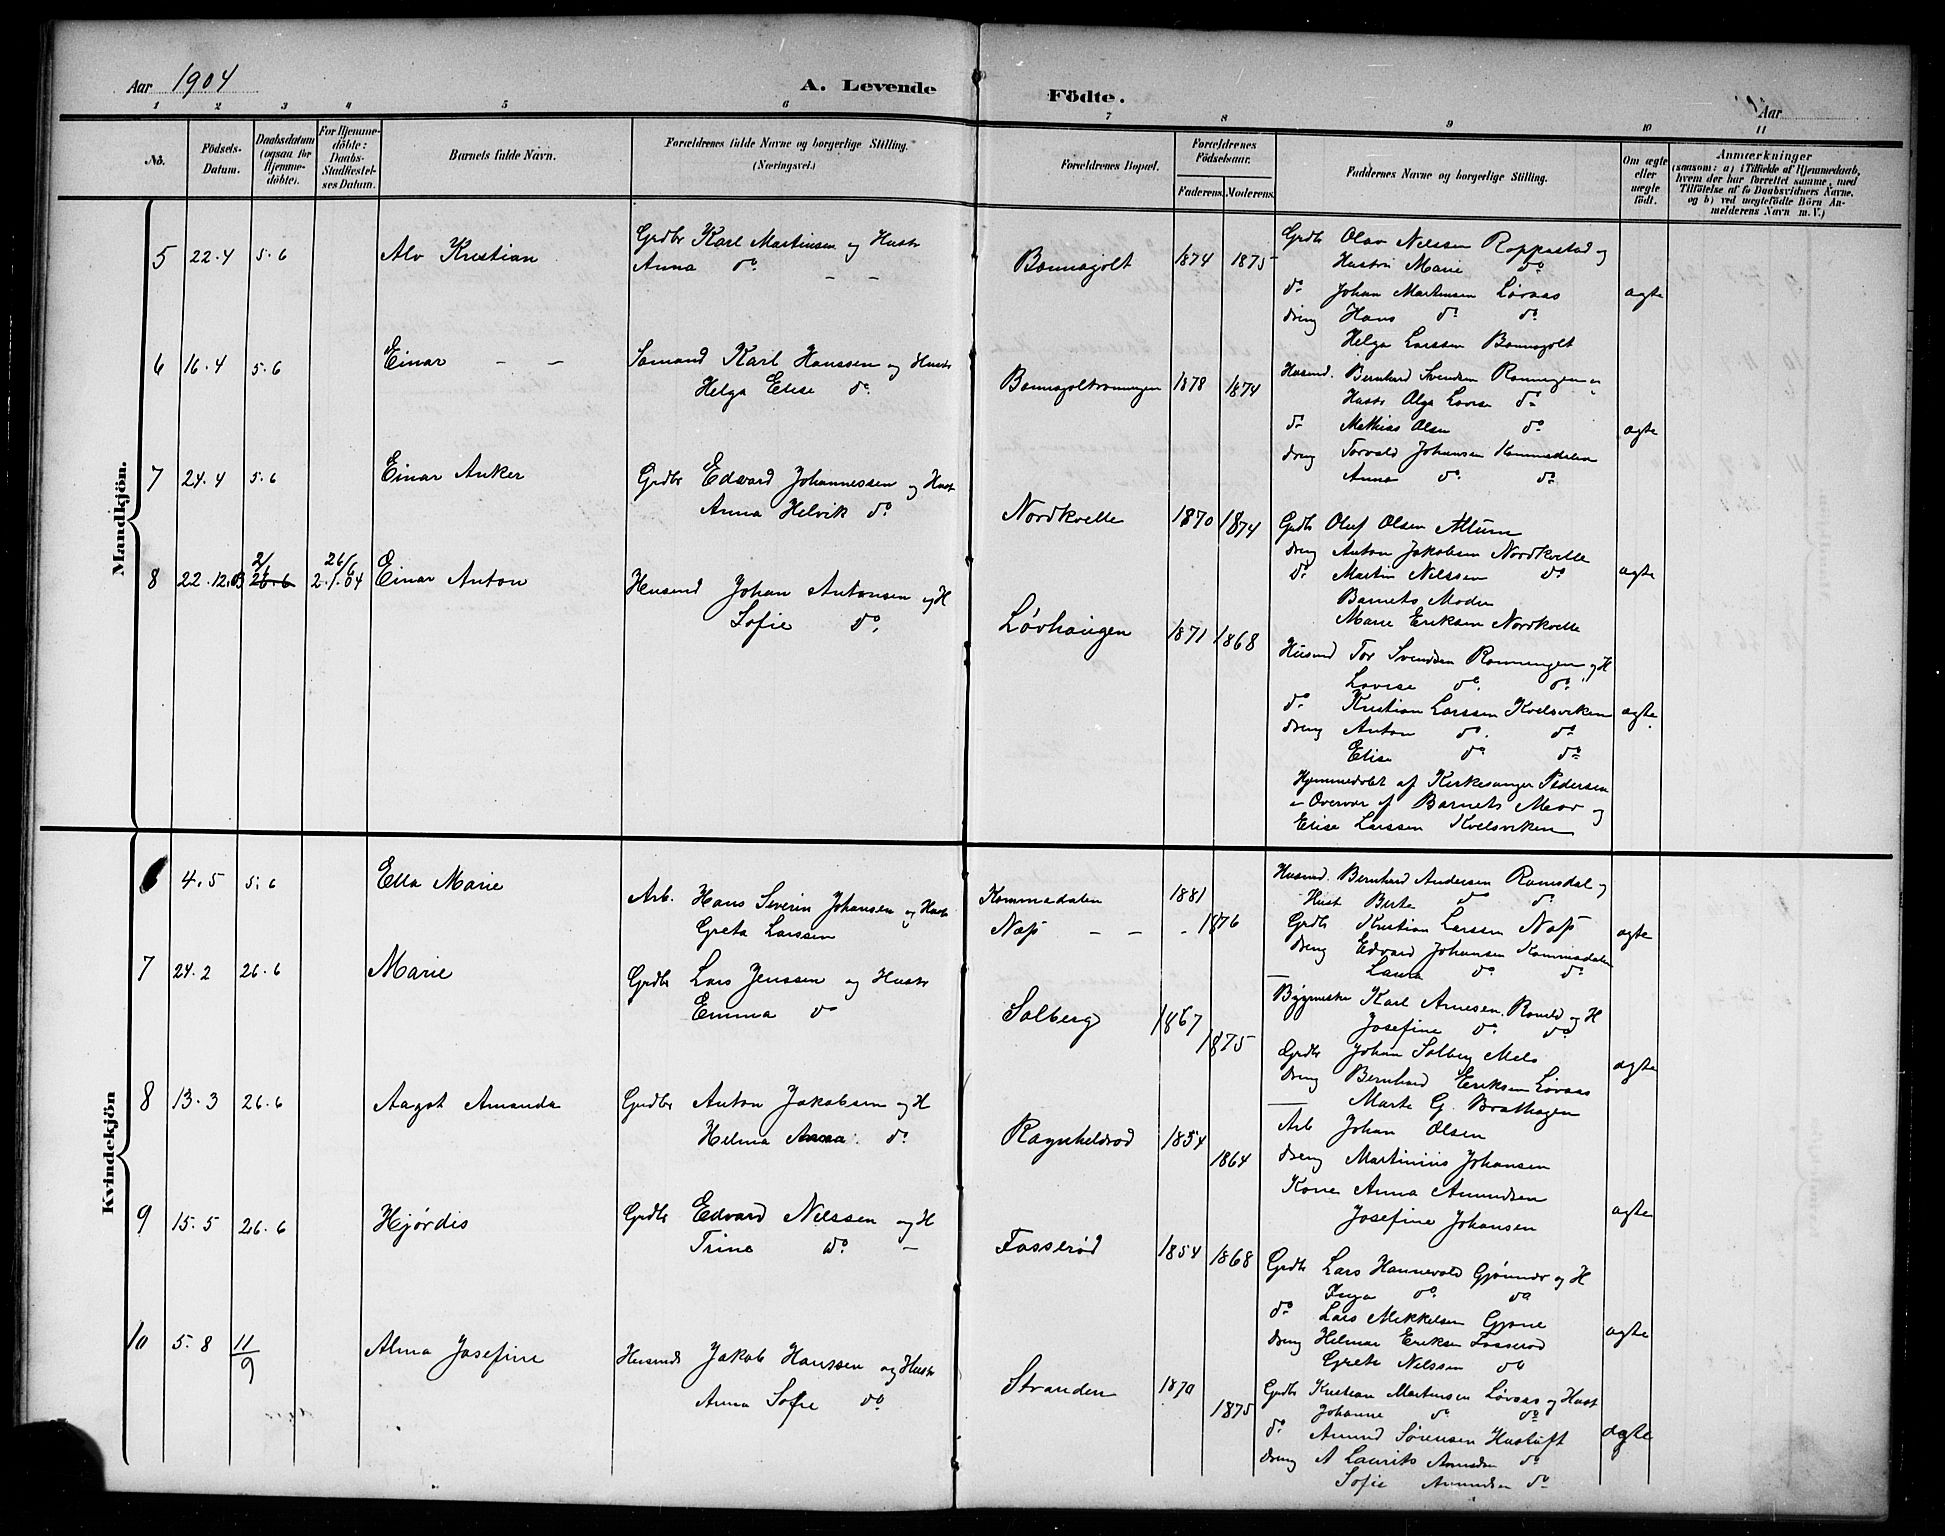 Aar 1904
A. Levende Födte.
Aar
1 2 3 4 5 6 7 8 9 10 11
No.
Födsets-Datum.
Daabsdatum (ogsaa for Hjemmedöbte).
For Hjemmedöbte: Daabs-Stadfæstelses Datum.
Barnets fulde Navn.
Forældrenes fulde Navne og borgerlige Stilling. (Næringsvei.)
Forældrenes Bopæl.
Forældrenes Födselsaar.
Faderens. Moderens.
Faddernes Navne og borgerlige Stilling.
Om ægte eller uægte födt.
Anmærkninger
(saasom: a) i Tilfælde af Hjemmedaab,
hvem der har forrettet samme, med
Tilföielse af to Daabsvidners Navne.
og b) ved uægtefödte Börn An-
melderens Navn m. V.)
Mandkjön.
5 22.4 5.6 Alv Kristian
Grdbr Karl Martinsen og Hustr
Anna do - -
Bonnagolt 1874 1875
Grdb Olav Nilssen Roppestad og
Hustru Marie do
do Johan Martinsen Løvaas
dreng Hans do do
Helga Larssen Bonnagolt
ægte
6 16.4 5.6 Einar - -
Sømand Karl Hanssen og Hustr
Helga Elise do
Bonnagoltrønningen 1878 1874
Husmd. Bernhard Svendsen Rønningen og
Hustr Olga Lovise do
do Mathias Olsen do
dreng Torvald Johansen Kommedalen
Anna do do
ægte
7 24.4 5.6 Einar Anker
Grdbr Edvard Johannessen og Hust
Anna Helvik do
Nordkvelle 1870 1874
Grdb Oluf Olsen Allum
dreng Anton Jakobsen Nordkvelle
do Martin Nilssen do
Barnets Moder
Marie Eriksen Nordkvelle
ægte
8 22.12.03 2/1 26.6 26/6 2.1.04 Einar Anton
Husmd Johan Antonsen og H
Sofie do.
Løvhaugen 1871 1868
Husmd Tor Svendsen Rønningen og H
Lovise do. do.
do Kristian Larssen Kvelsviken
dreng Anton do. do
Elise do do
ægte
Hjemmedøbt af Kirkesanger Pedersen
i Overvær af Barnets Mor og
Elise Larssen Kvelsviken
Kvindekjön
6 4.5 5.6 Ella Marie
Arb. Hans Severin Johansen og Hustr
Greta Larssen
Kommedalen 1881
Næs - - - 1876
Husmd. Bernhard Andersen Ramsdal og
Hust Berte do do
Grdb Kristian Larssen Næs
dreng Edvard Johansen Kommedalen
Laura do do
ægte
7 24.2 26.6 Marie
Grdbr Lars Jenssen og Hustr
Emma do
Solberg 1867 1875
Bygmester Karl Arnesen og H
Josefine do do
Grdb Johan Solberg Melø
dreng Bernhard Eriksen Løvaas
Marte G. Brathagen
ægte
8 13.3 26.6 Aagot Amanda
Grdbr Anton Jakobsen og H
Helma Anna do
Ragnhildrød 1854 1864
Arb Johan Olsen
dreng Martinius Johansen
Kone Anna Amundsen
Josefine Johansen
ægte
9 15.5 26.6 Hjørdis
Grdbr Edvard Nilssen og H
Trine do -
Fosserød 1854 1868
Grdb Lars Hannevold og H
Inga do do
do Lars Mikkelsen Gjøne
dreng Helmar Eriksen Fosserød
Greta Nilssen do
ægte
10 5.8 11/9 Alma Josefine
Husmd Jakob Hanssen og Hustr
Anna Sofie do
Stranden 1870 1875
Grdb Kristian Martinsen Løvaas og Hust
Johanne do do
do Amund Sørensen Hustuft
dreng A Laurits Amundsen do
Sofie Amundsen do
ægte